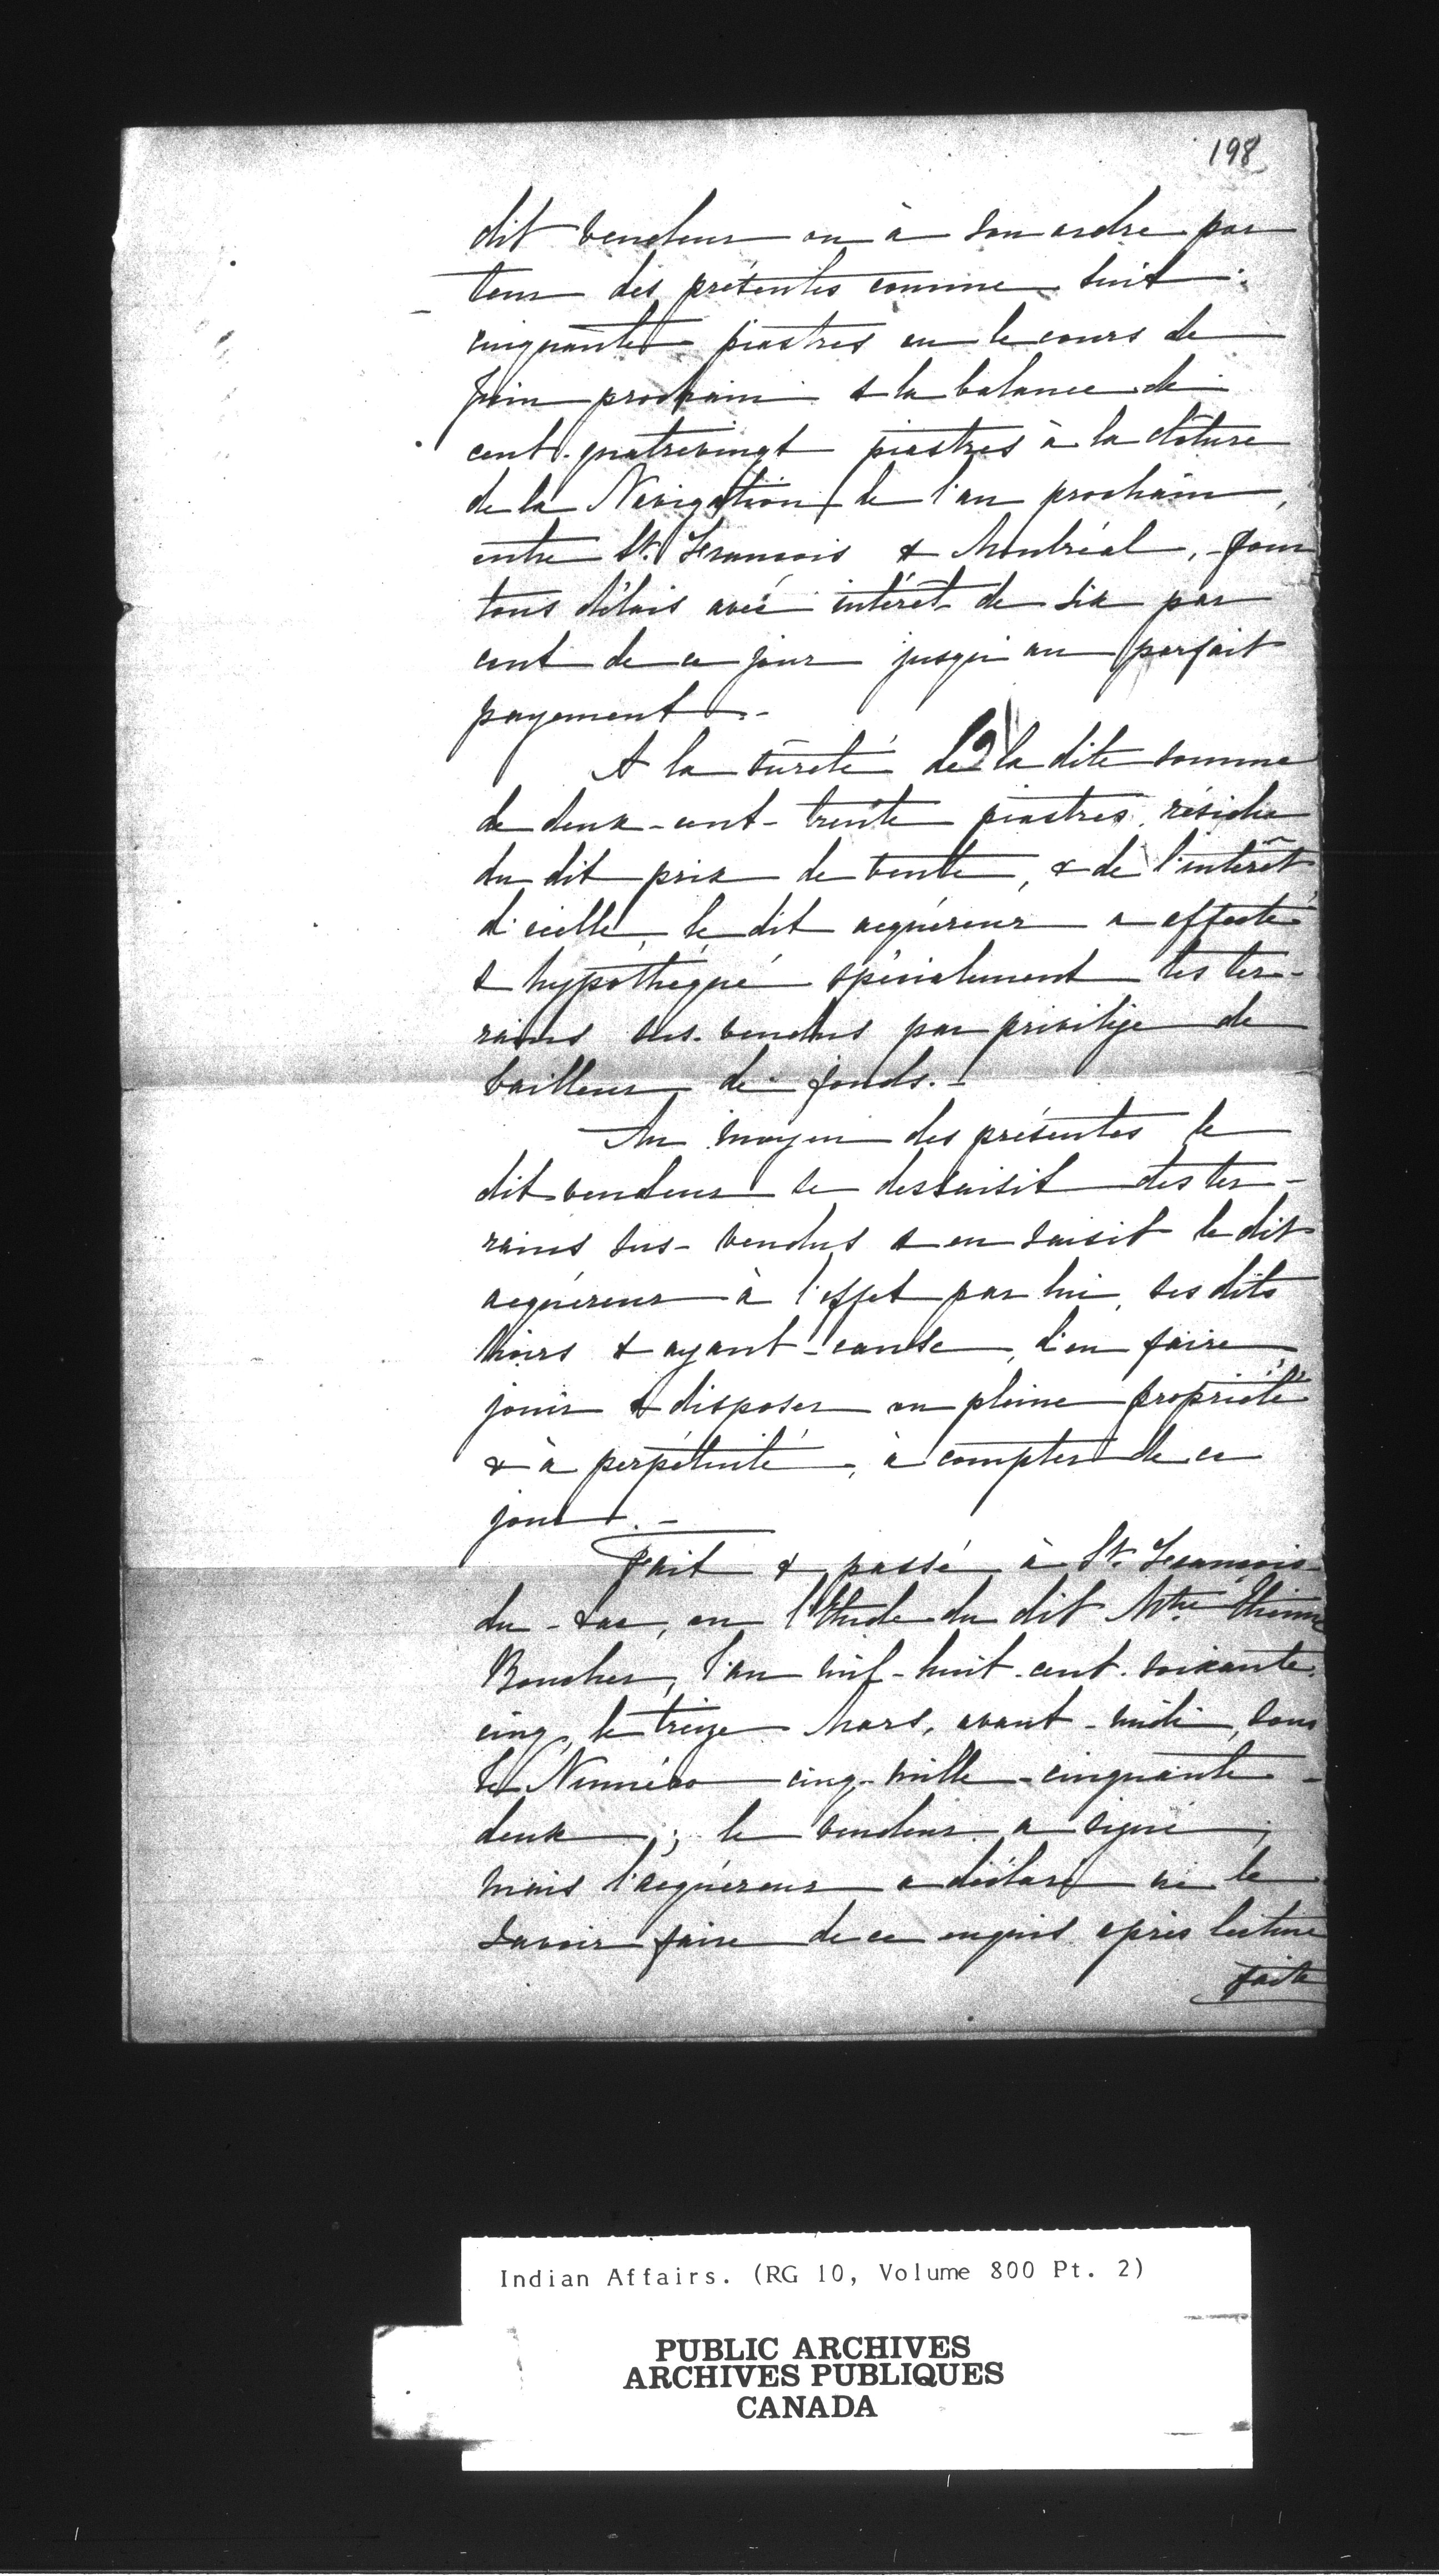 198
dit vendeur ou à son ordre por
teur des présentes comme suit :
cinquante piastres en le cours de
Juin prochain & la balance de
cent-quatrevingt piastres à la clôture
de la Navigation de l'an prochain,
entre St. François & Montréal, pour
tous délais avec intérêt de six par
cent de ce jour jusqu'au parfait
payement.-
A la sûreté de la dite somme
de deux-cent-trente piastres, résidu
du dit prix de vente, & de l'intérêt
d'icelle, le dit acquéreur a affecté
& hypothéqué spécialement les ter-
rains sus-vendus par privilège de
bailleur de fonds.-
Au moyen des présentes le
dit vendeur se dessaisit des ter-
rains sus-vendus & en saisit le dit
acquéreur à l'effet par lui, ses dits
hoirs & ayant-cause, d'en faire
jouir & disposer en pleine propriété
& à perpétuité, à compter de ce
jour.-
Fait & passé à St. François-
du-Lac, en l'Etude du dit Mtre Etienne
Boucher, l'an mil-huit-cent-soixante-
cinq, le treize Mars, avant-midi, sous
le Numéro cinq-mille-cinquante-
deux ; le vendeur a signé,
mais l'acquéreur a déclaré ne le
savoir faire de ce enquis après lecture
faite
Indian Affairs. (RG 10, Volume 800 Pt. 2)
PUBLIC ARCHIVES
ARCHIVES PUBLIQUES
CANADA